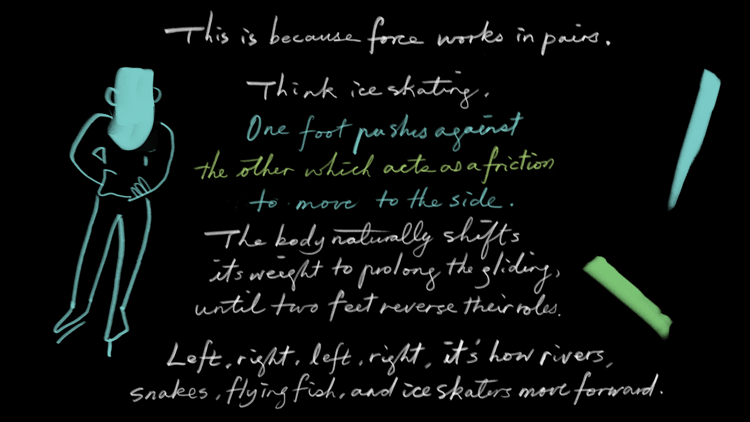 This is because force works in pairs.
Think ice skating.
One foot pushes against
the other which acts as a friction
to move to the side.
The body naturally shifts
its weight to prolong the gliding,
until two feet reverse their roles.
Left, right, left, right, it's how rivers,
snakes, flying fish, and ice skaters move forward.